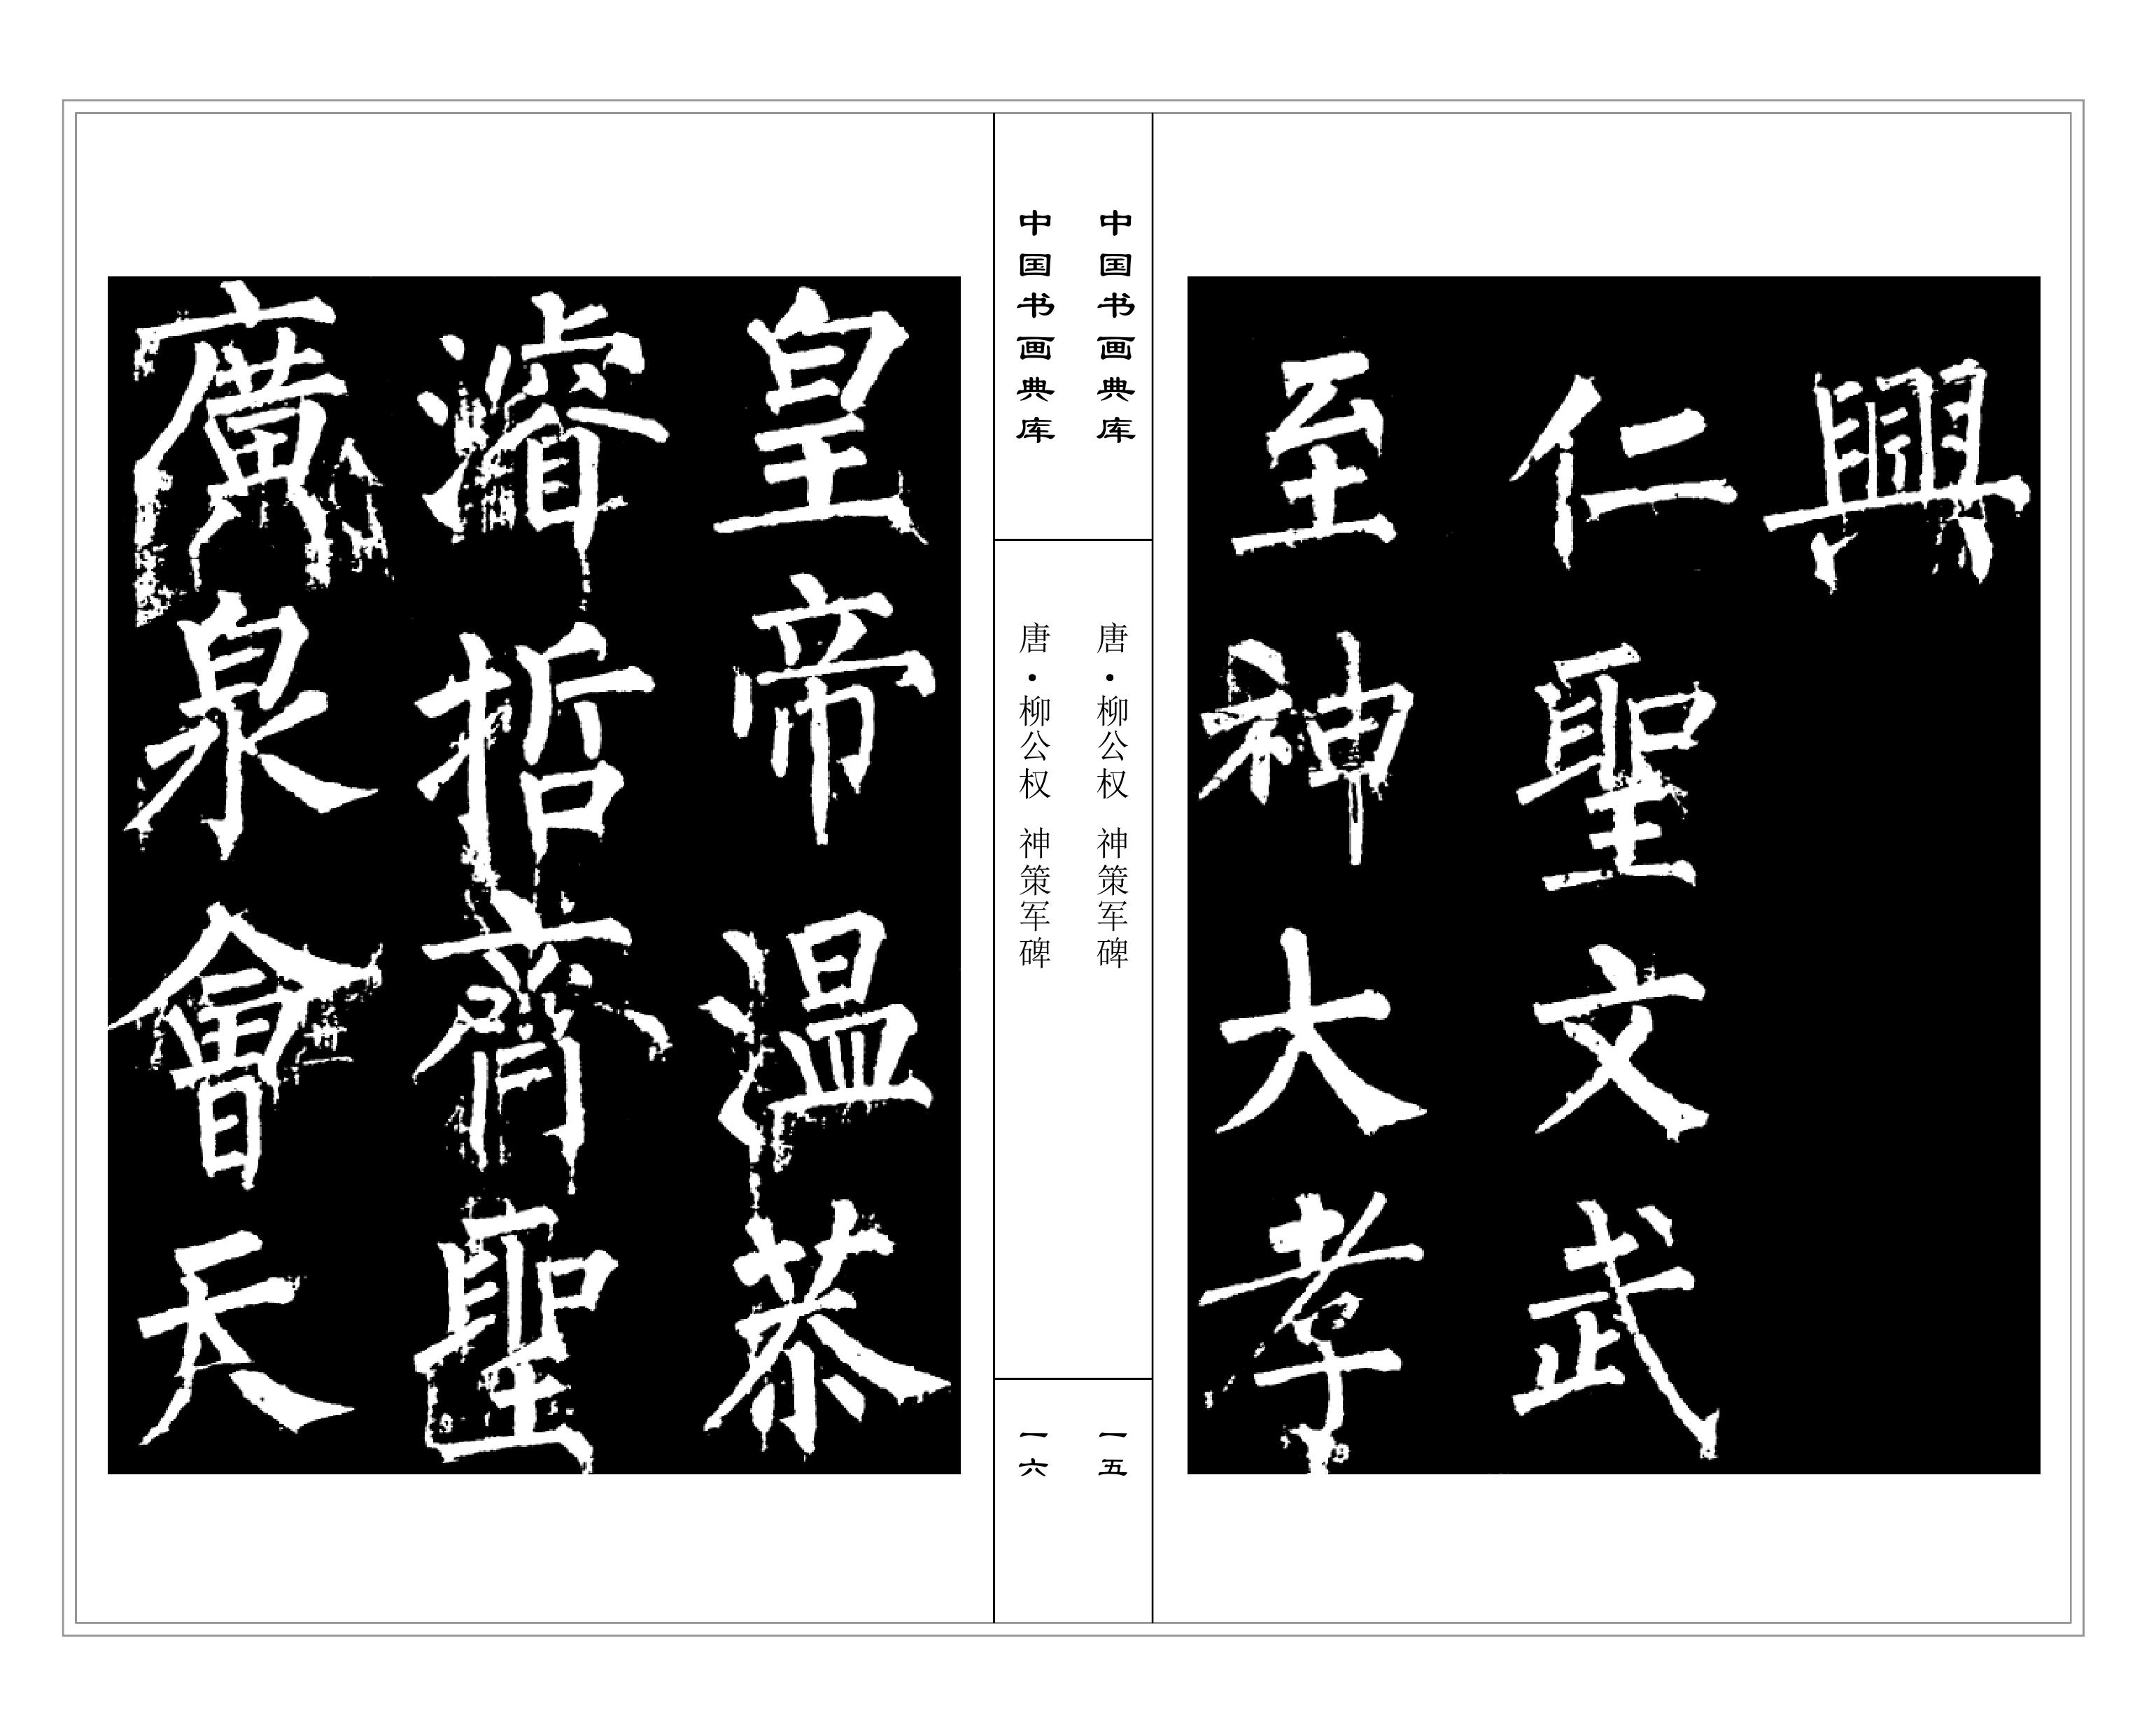 興
仁聖文武
至神大孝
中国书画典库
唐·柳公权 神策军碑
一五
中国书画典库
唐·柳公权 神策军碑
一六
皇帝温恭
濬哲齊聖
廣泉會天